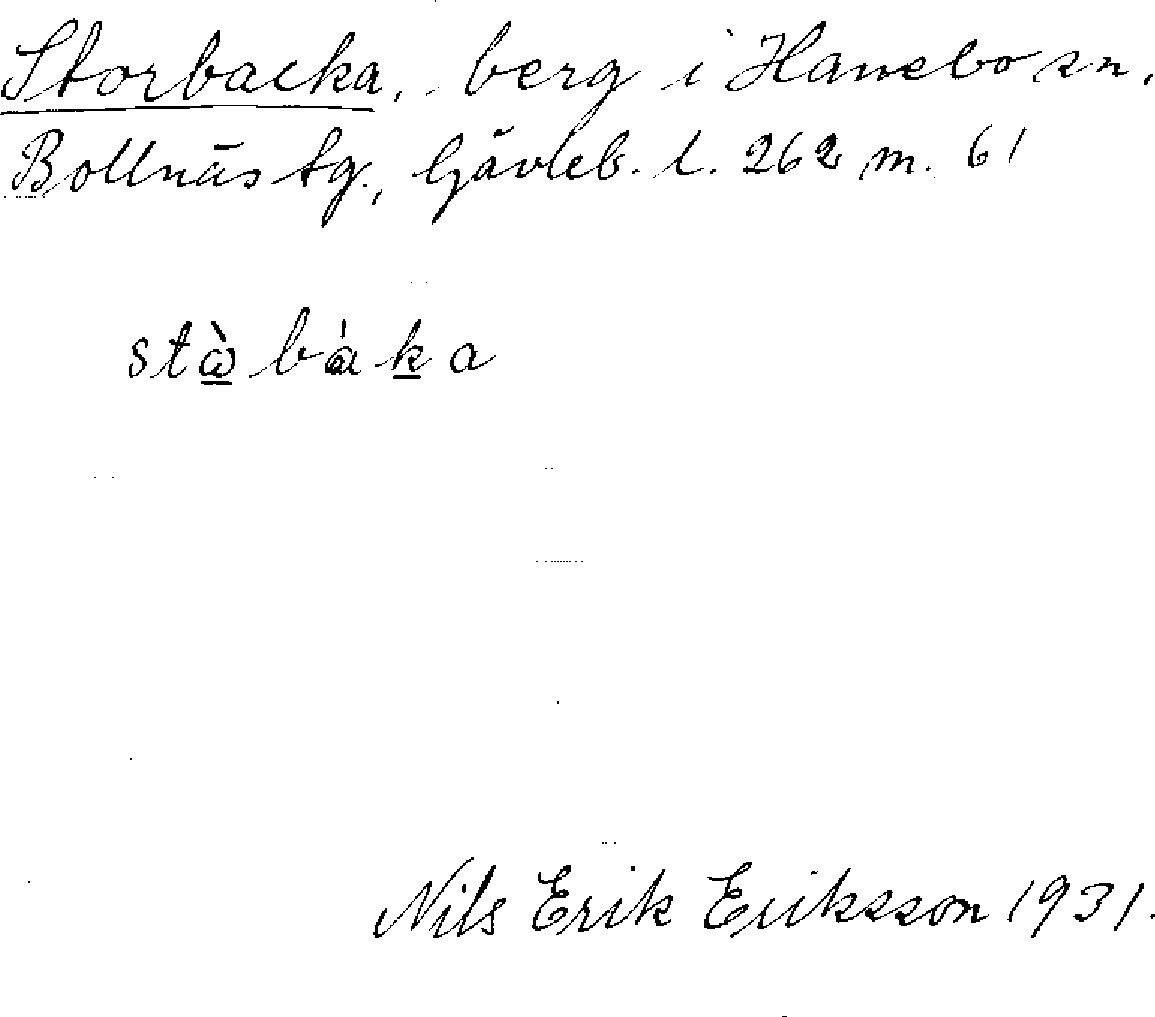 Storbacka, berg i Hanebo sn,
Bollnäs tg., Gävleb. l. 262 m. 61
stὼbàka
Nils Erik Eriksson 1931.